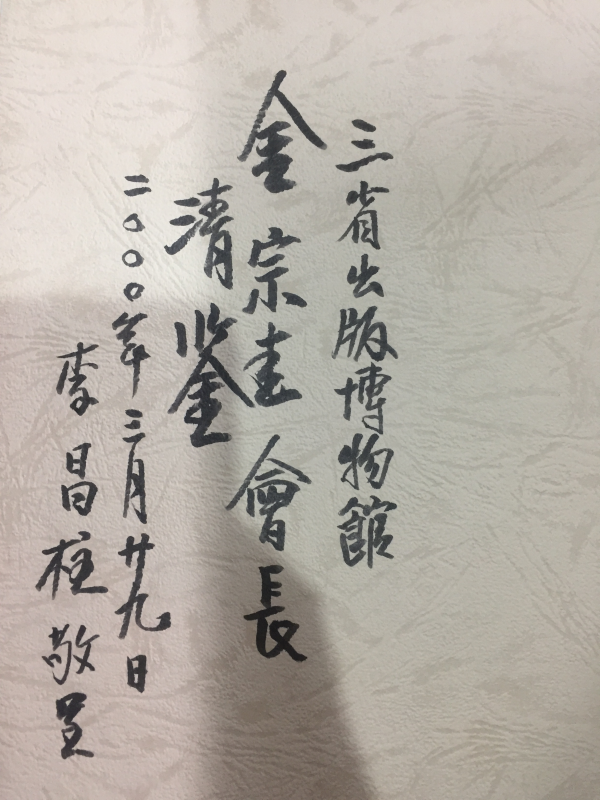 三省出版博物館
金宗圭會長
清鑒
二〇〇〇年三月廿九日
李昌柱敬呈